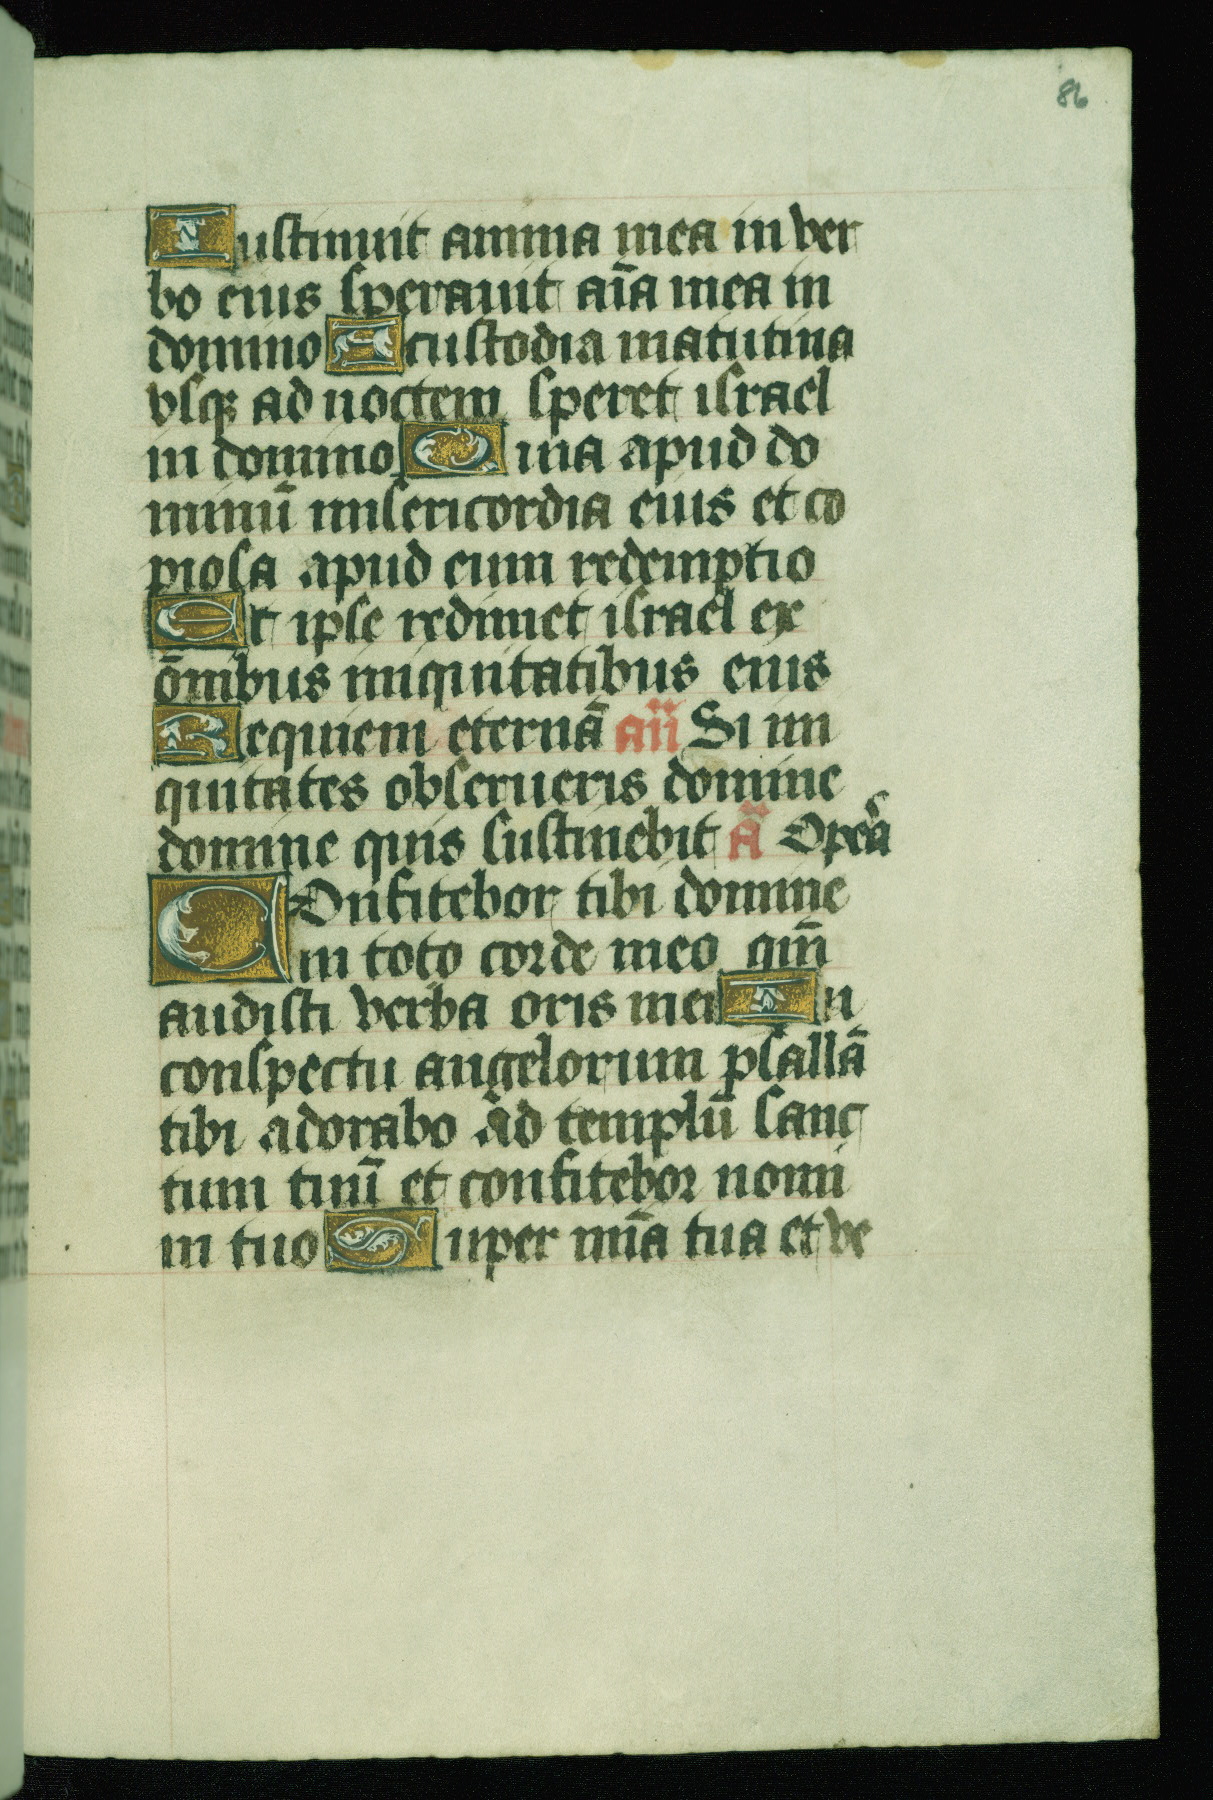 86
Iustinuit anima mea in ver
bo eius sperauit aīa mea in
domino A custodia matutina
vsqꝫ ad noctem speret israel
in domino Quia apud do
minū misericordia eius et co
piosa apud eum redemptio
Et ipse redimet israel ex
ōnibus iniquitatibus eius
Requiem eternā añ Si ini
quitates obserueris domine
domine quis sustinebit ā Opera
Confitebor tibi domine
in toto corde meo qm̄
audisti verba oris mei In
conspectu angelorum psallā
tibi adorabo ad templū sanc
tum tuū et confitebor nomi
ni tuo Super mīa tua et ve